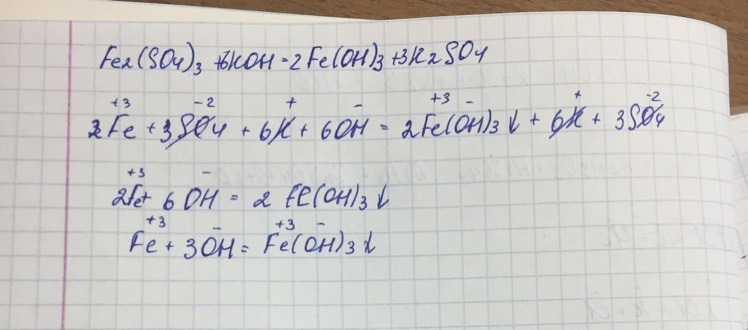 Fe₂(SO₄)₃ + 6KOH = 2Fe(OH)₃ + 3K₂SO₄
2Fe⁺³ + 3SO₄⁻² + 6K⁺ + 6OH⁻ = 2Fe⁺³(OH)⁻₃↓ + 6K⁺ + 3SO₄⁻²
2Fe⁺³ + 6OH⁻ = 2Fe(OH)₃↓
Fe⁺³ + 3OH⁻ = Fe⁺³(OH)⁻₃↓